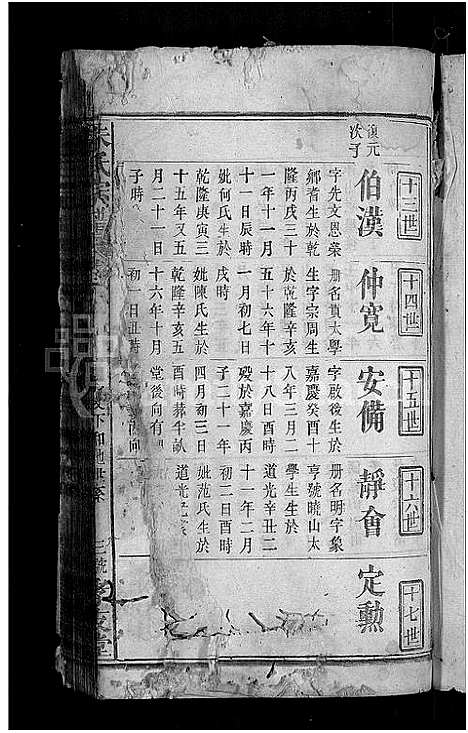 十三世
十四世
十五世
十六世
十七世
復元
次子
伯漢
字先文恩榮
鄉耆生於乾
隆丙戌三十
一年十一月
十一日辰時
妣何氏生於
乾隆庚寅三
十五年又五
月二十一日
子時
仲寬
册名貫太學
生字宗周生
於乾隆辛亥
五十六年十
一月初七日
戌時
妣陳氏生於
乾隆辛亥五
十六年十月
初一日丑時
安備
字啟後生於
嘉慶癸酉十
八年三月二
十八日酉時
殁於嘉慶丙
子二十一年
四月初三日
酉時葬牛畝
堂後向有
向
靜會
册名明字象
亨號曉山太
學生生於
道光辛丑二
十一年二月
初二日酉時
妣范氏生於
道光
定勳
朱氏宗譜
三號
堂